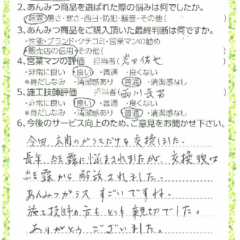 2.あんみつ商品を選ばれた際の悩みは何でしたか。
結露・暑さ・寒さ・西日・防犯・騒音・その他(
3.あんみつ商品をご購入頂いた最終判断は何ですか。
性能・ブランド・クチコミ・営業マンの勧め
販売店の信用・その他(
4.営業マンの評価 担当者
・非常に良い ・良い ・普通 ・良くない
*身だしなみ ・清潔感あり ・普通 ・清潔感なし
5.施工技師評価 担当者
・非常に良い ・良い ・普通 ・良くない
*身だしなみ ・清潔感あり ・普通 ・清潔感なし
6.今後のサービス向上のため、ご意見をお聞かせ下さい。
今回、表側のガラスだけを交換しました。
長年、結露に悩まされましたが、交換後は
結露から解放されました。
あんみつガラス すごいですね。
施工技師の方も とても親切でした。
ありがとうございました。